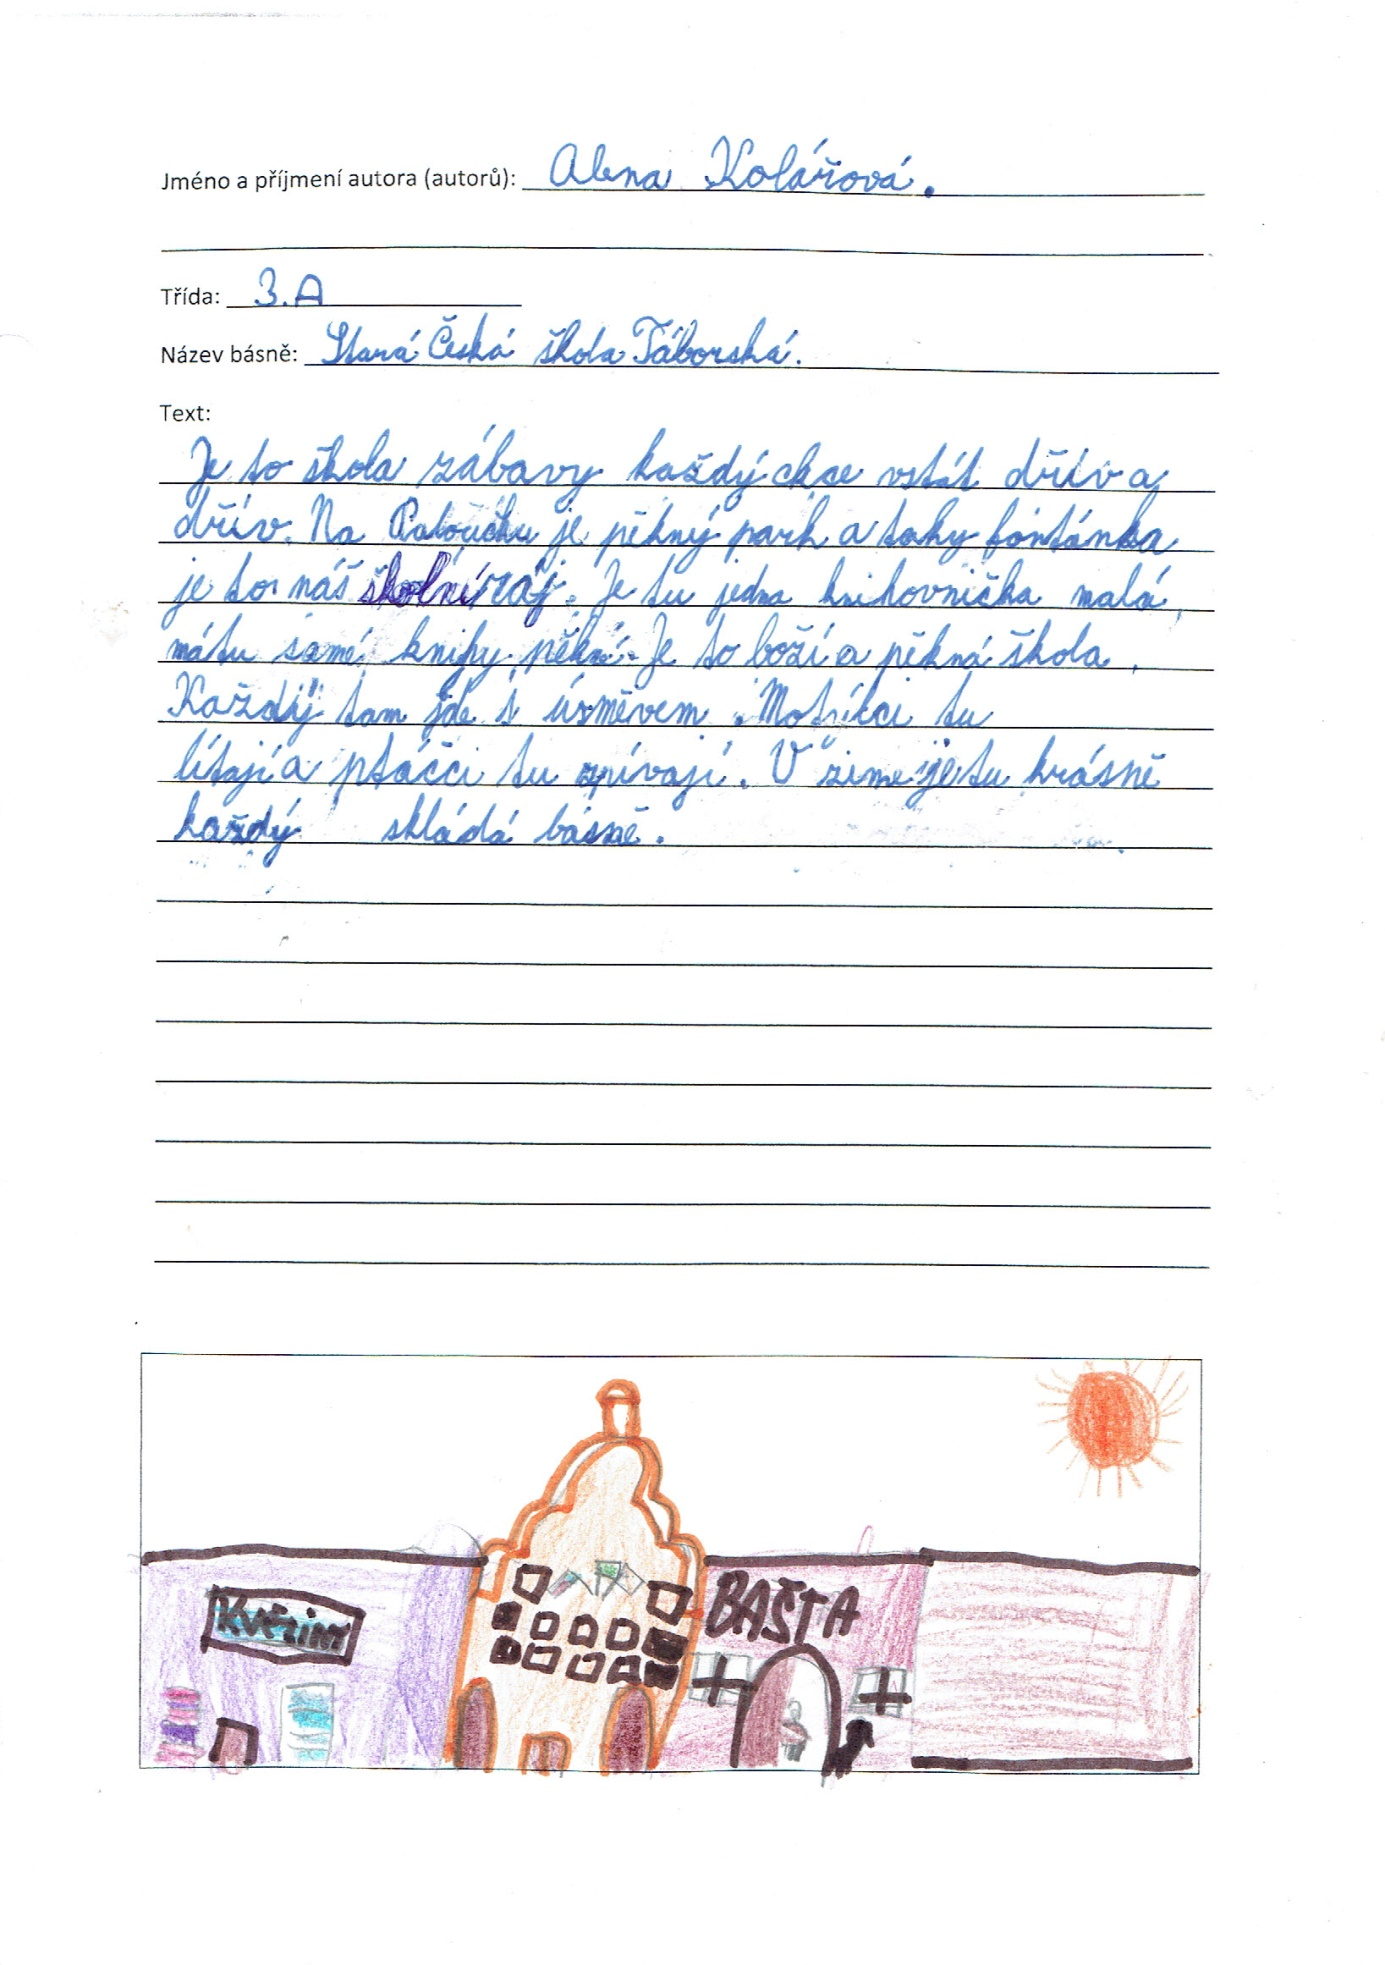 Jméno a příjmení autora (autorů): Alena Kolářová.
Třída: 3.A
Název básně: Stará Česká škola Táborská.
Text:
Je to škola zábavy každý chce vstát dřív a
dřív. Na Paloučku je pěkný park a taky fontánka
je to náš školní ráj. Je tu jedna knihovnička malá,
má tu samé knihy pěkné. Je to boží a pěkná škola.
Každý tam jde s úsměvem. Motýlci tu
lítají a ptáčci tu zpívají. V zimě je tu krásně
každý skládá básně.
BAŠTA